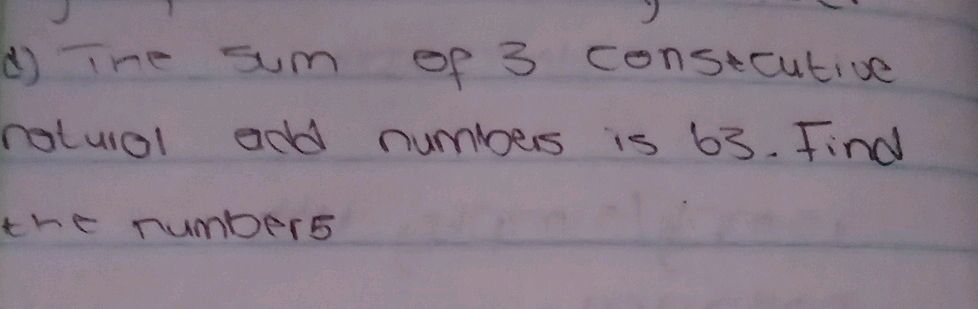 d) The sum of 3 consecutive
natural odd numbers is 63. Find
the numbers